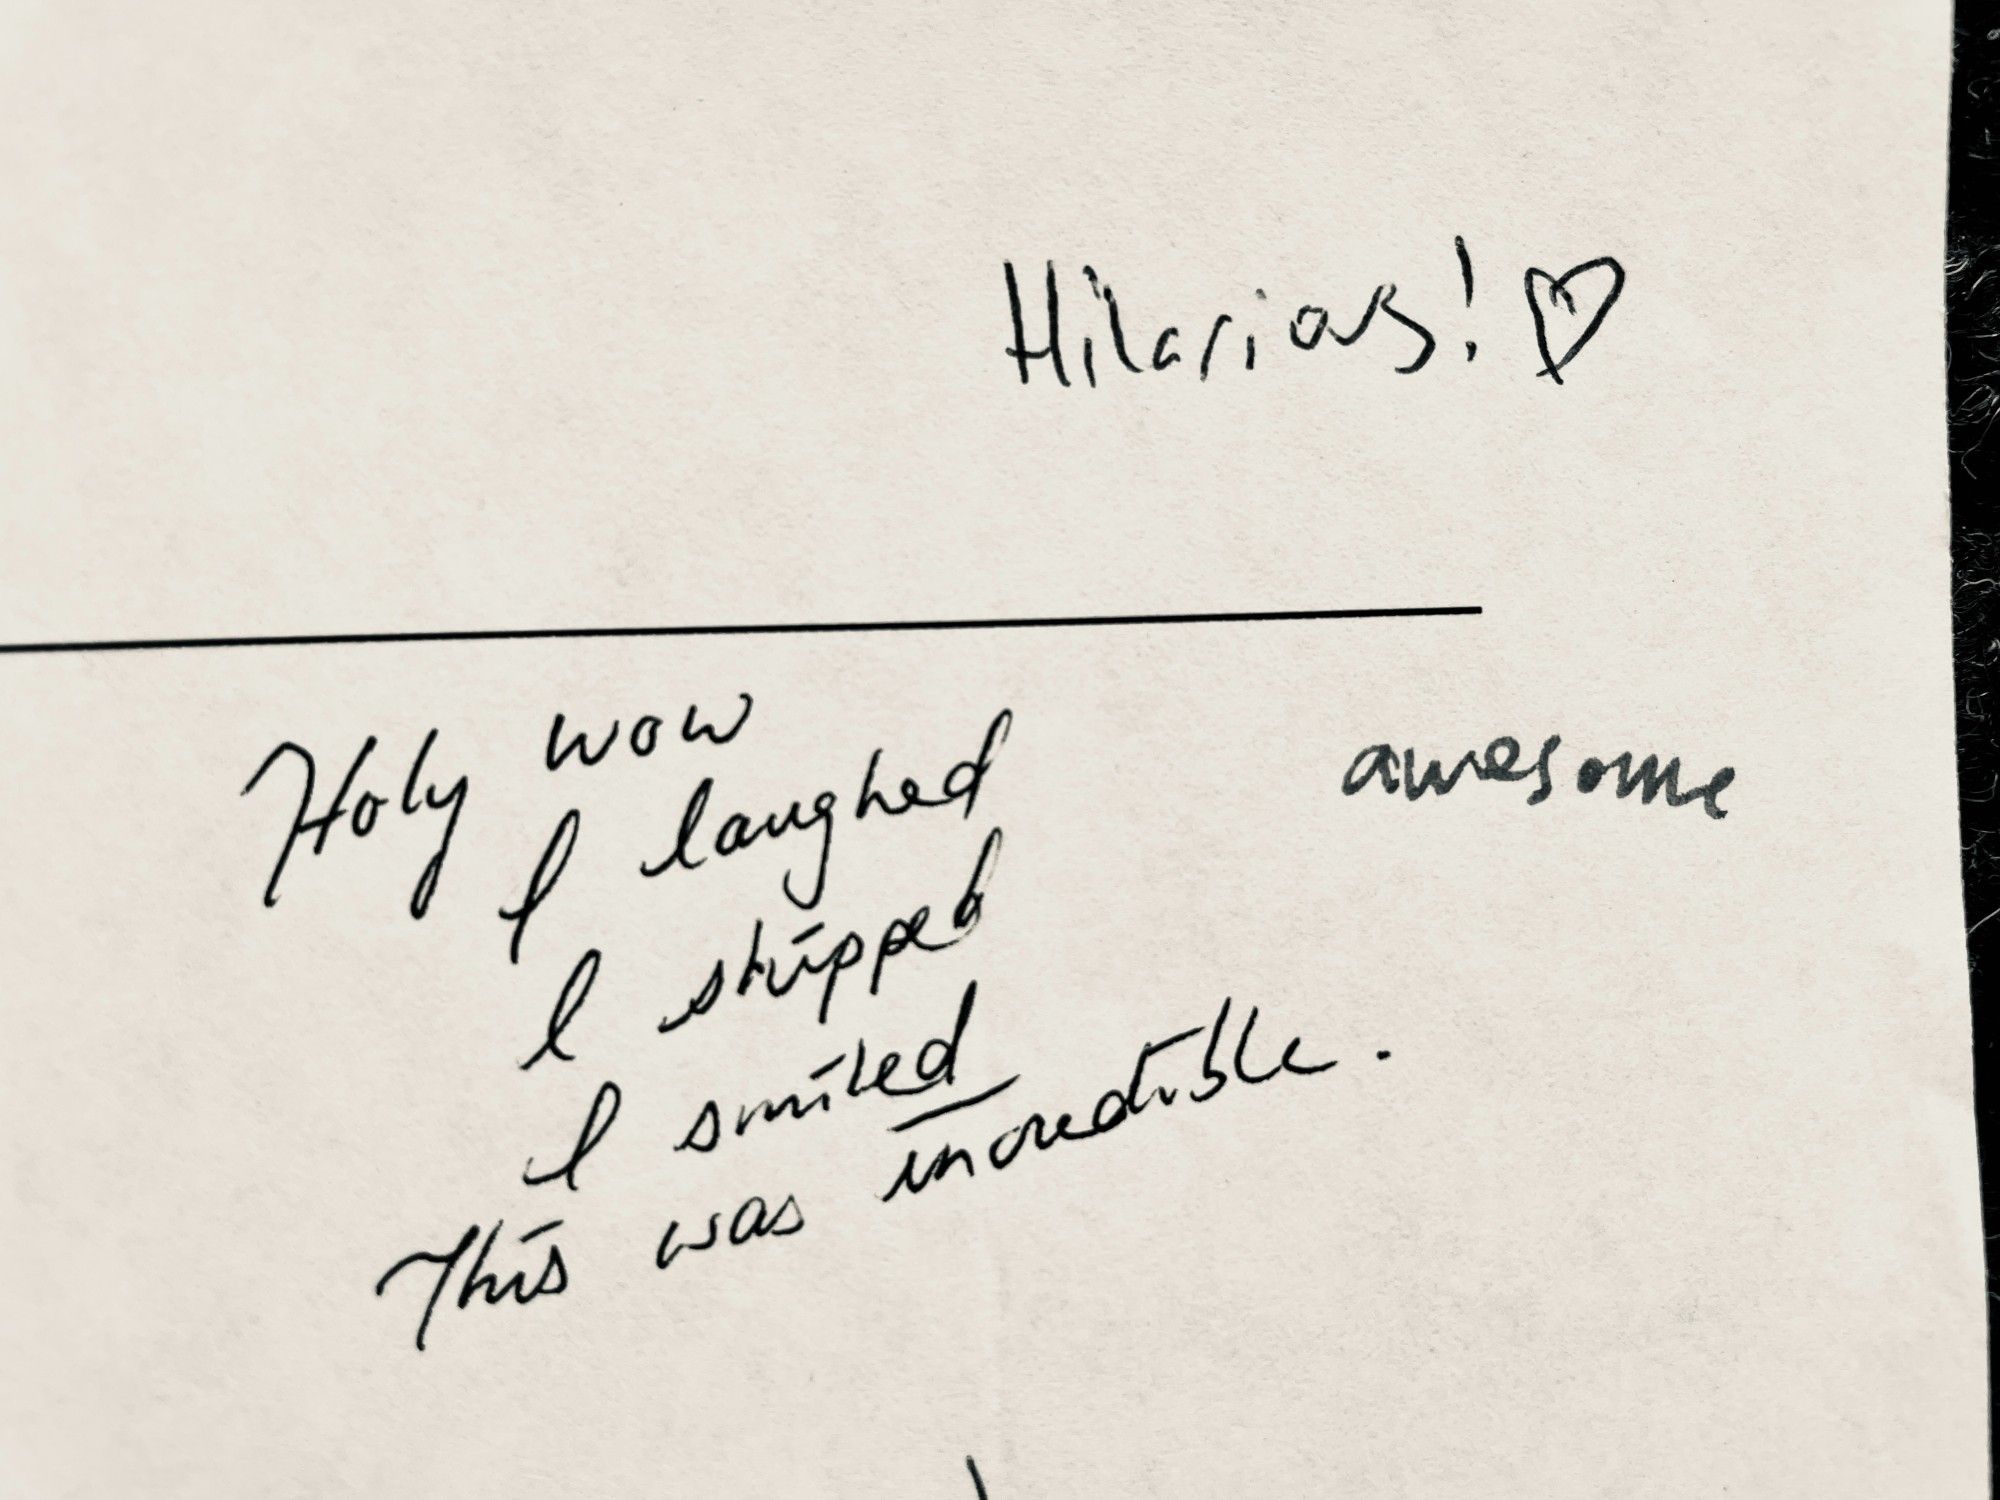 Hilarious! ♡
Holy wow
awesome
I laughed
I stripped
I smiled
This was incredible.